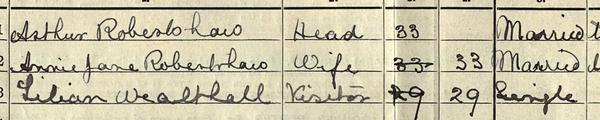 1 Arthur Robertshaw Head 33 Married
2 Annie Jane Robertshaw Wife 33 33 Married
3 Lilian Wealthall Visitor 29 29 Single